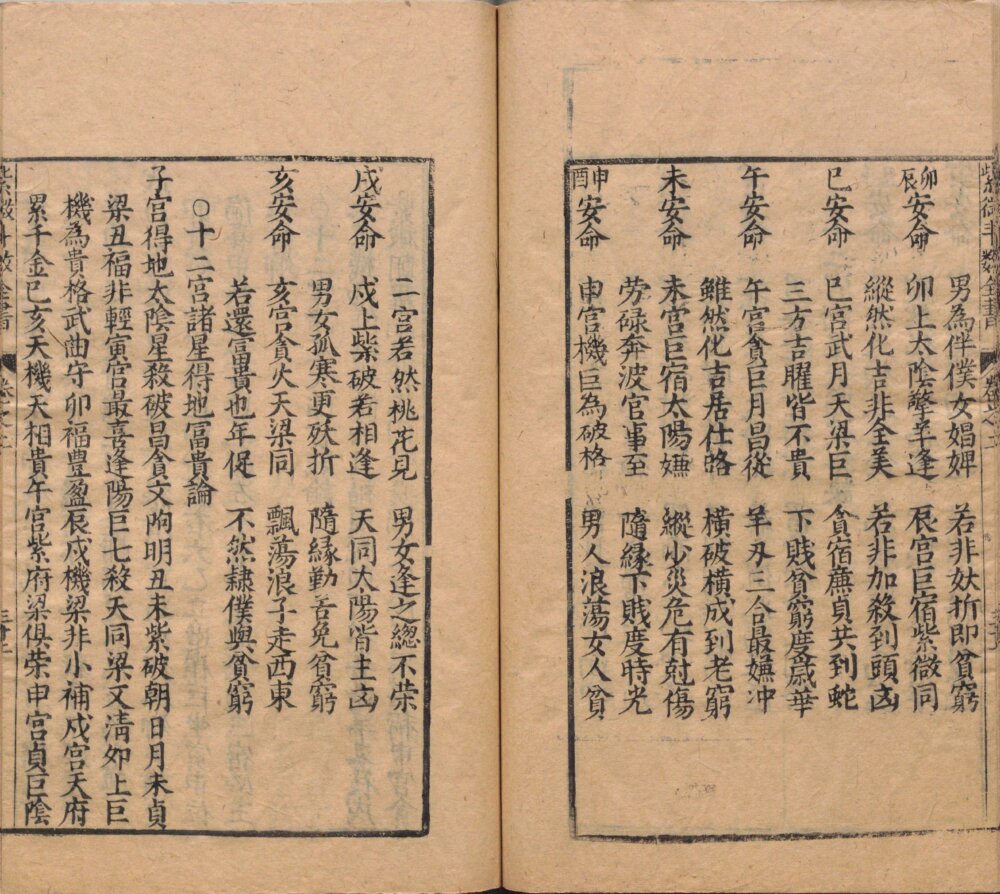 紫微斗數全書
男為伴僕女娼婢 若非妖折即貧窮
卯辰安命 卯上太陰擎羊逢 辰宮巨宿紫微同
縱然化吉非全美 若非加殺到頭凶
巳安命 巳宮武月天梁巨 貪宿蔗貞共到蛇
三方吉曜皆不貴 下賤貧窮度歲華
午安命 午宮貪巨月昌從 羊刃三合最嫌冲
雖然化吉居仕路 橫破橫成到老窮
未安命 未宮巨宿太陽嫌 縱少災危有尅傷
勞碌奔波官事至 隨緣下賤度時光
申酉安命 申宮機巨為破格 男人浪蕩女人貧
二宮若然桃花見 男女逢之總不榮
戌安命 戌上紫破若相逢 天同太陽皆主凶
男女孤寒更殀折 隨緣勤苦免貧窮
亥安命 亥宮貪火天梁同 飄蕩浪子走西東
若還富貴也年促 不然隸僕與貧窮
○十二宮諸星得地富貴論
子宮得地太陰星殺破昌貪文曲明丑未紫破朝日月未貞
梁丑福非輕寅宮最喜逢陽巨七殺天同梁又清卯上巨
機為貴格武曲守卯福豊盈辰戌機梁非小補戌宮天府
累千金巳亥天機天相貴午宮紫府梁俱荣申宮貞巨陰
紫微斗數全書